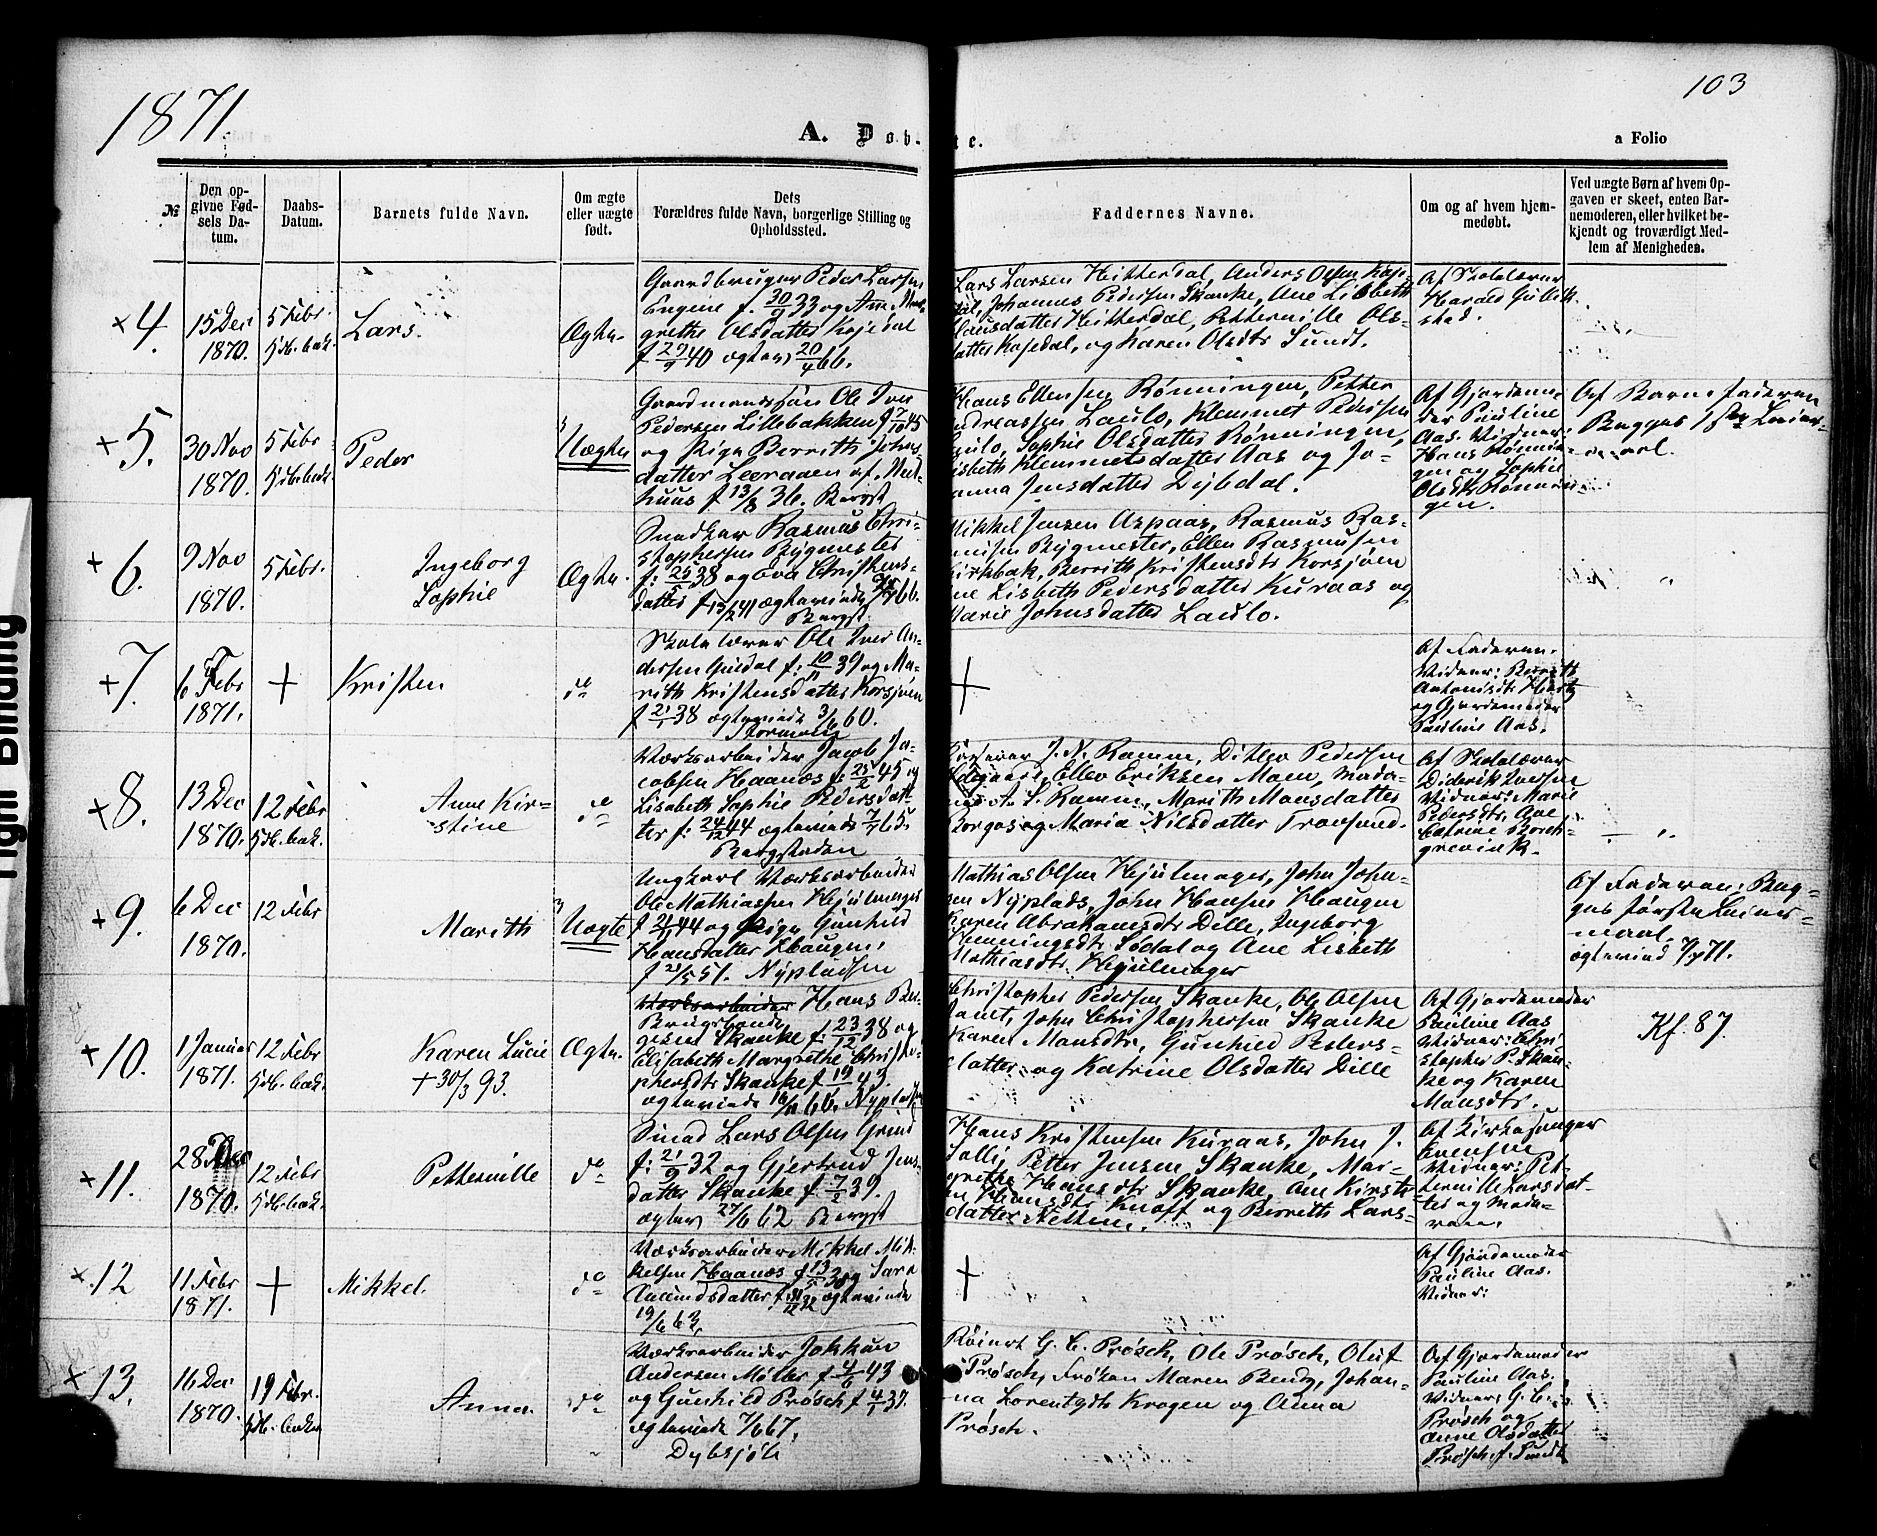 1871
103
A. Døb- te.
a Folio
№
Den op-
givne Fød-
sels Da-
tum.
Daabs-
Datum.
Barnets fulde Navn.
Om ægte
eller uægte
født.
Dets
Forældres fulde Navn, borgerlige Stilling og
Opholdssted.
Faddernes Navne.
Om og af hvem hjem-
medøbt.
Ved uægte Børn af hvem Op-
gaven er skeet, enten Bar-
nemoderen, eller hvilket be-
kjendt og troværdigt Med-
lem af Menigheden.
+ 4.
15 Dec
1870.
5 Febr.
Lars.
Ægte
Gaardbruger Peder Larsen
Engene f. 30/9 33 og Ane Mar-
grethe Olsdatter Kojedal
f 29/9 40 ægtev 20/4 66.
Lars Larsen Hitterdal, Anders Olsen Koje-
dal, Johannes Pedersen Skanke, Ane Lisbeth
Clausdatter Hitterdal, Petternille Ols-
datter Kojedal, og Karen Olsdtr Sundt.
Af Skolelærer
Harald Gulbrk-
stad.
+ 5.
30 Nov
1870.
5 Febr
Peder
3
Uægte
Gaardmandssøn Ole Iver
Pedersen Lillebakken f 7/10 45
og Pige Berrith Johns-
datter Leeraaen af Mel-
huus f 13/8 36. Bergst
Hans Ellensen Rønningen, Petter
Andreassen Laulo, Klemmet Pedersen
Laulo, Sophie Olsdatter Rønningen,
Lisbeth Klemmetsdatter Aas og Jo-
hanna Jensdatter Dybdal.
Af Gjordemo-
der Pauline
Aas. Vidner:
Hans Rønnin-
gen og Sophie
Olsdtr Rønnin-
gen.
Af Barnefaderen
Begges 1ste Leier-
maal.
+ 6.
9 Nov
1870.
5 Febr.
Ingeborg
Sophie
Ægte.
Snedker Rasmus Chri-
stophersen Bygmester
f: 25/5 38 og Eva Christens-
datter f 13/2 41 ægteviede 66.
Bergst.
Mikkel Jensen Aspaas, Rasmus Ras-
musen Bygmester, Ellen Rasmusen
Birkbak, Berrith Kristensdtr Korsjøen
Ane Lisbeth Pedersdatter Kuraas og
Marie Johnsdatter Laulo.
"
+ 7.
6 Febr
1871.
+
Kristen
do
Skolelærer Ole Iver An-
dersen Guldal f: 10/11 39 og Ma-
rith Kristensdatter Korsjøen
f 21/1 38 ægteviede 3/6 60.
Stormoen
+
Af Faderen.
Vidner: Berrith
Antonisdtr Hartz
og Gjordemoder
Pauline Aas.
+ 8.
13 Dec
1870.
12 Febr
Anne Kir-
stine
do
Værksarbeider Jacob Ja-
cobsen Haanæs f: 25/2 45 og
Lisabeth Sophie Pedersdat-
ter f: 24/12 44 ægteviede 7/7 65.
Bergstaden
J. N. Ramm, Ditlev Pedersen
Ødegaard, Ellev Eriksen Moen, Mada-
me A. S. Ramm, Marith Monsdatter
Borgos og Maria Nilsdatter Trøesund.
Af Skolelærer
Diderik Iversen
Vidner: Marie
Pedersdtr, Ane
Catrine Borch-
grevink.
"
+ 9.
6 Dec
1870.
12 Febr
Marith
3
Uægte
Ungkarl Værksarbeider
Ole Mathiassen Hjulmager
f 44 og Pige Gunhild
Hansdatter Haugen,
f 21/5 51. Nypladsen
Mathias Olsen Hjulmager, John John-
sen Nyplads, John Hansen Haugen
Karen Abrahamsdtr Dille, Ingeborg
Henningsdtr Sødal og Ane Lisbeth
Mathiasdtr Hjulmager
Af Faderen: Beg-
ges første Leier-
maal.
ægteviet 7/7 71.
+ 10.
1 Januar
1871.
12 Febr
Karen Lucie
+ 30/3 93.
Ægte.
Værksarbeider Hans Bir-
Brugsbonde
gesen Skanke f: 23/12 38 og
Elisabeth Margrethe Christo-
phersdtr Skanke f 19/ 43.
ægteviede 16/11 66. Nypladsen
Christopher Pedersen Skanke, Ole Olsen
Jamt, John Christophersen Skanke
Karen Monsdtr, Gunhild Peders-
datter og Katrine Olsdatter Dille
Af Gjordemoder
Pauline Aas
Vidner: Chri-
stopher P. Skan-
ke og Karen
Monsdtr.
Kf. 87.
+ 11.
28 Dec
1870.
12 Febr
Petternille
do
Smed Lars Olsen Grind
f: 21/9 32 og Gjertrud Jens-
datter Skanke f. 7/2 39.
ægtev 27/6 62 Bergst
Hans Kristensen Kuraas, John J.
Solli, Petter Jensen Skanke, Mar-
grethe Hansdtr Skanke, Ane Kirsti-
ne Hansdtr Knoff og Berreth Lars-
datter
Af Kirkesanger
Evensen
Vidner: Pet-
ternille Larsdat-
ter og Mode-
ren.
+ 12
11 Febr
1871.
+
Mikkel.
do
Værksarbeider Mikkel Mik-
kelsen Haanæs f 13/ og Sara
Amundsdatter f 31/12 32 ægteviede
19/6 63.
+
Af Gjordemoder
Pauline Aas.
Vidner:
+ 13.
16 Dec
1870.
19 Febr.
Anna.
do
Værksarbeider Jokkum
Andersen Møller f 4/6 43
og Gunhild Prøsch f 4/1 37
ægteviede 7/6 67.
Dybsjøli
Reinert G. C. Prøsch, Ole Prøsch, Oluf
Prøsch, Frøken Maren Bendz, Johan-
na Lorentzdtr Krogen og Anna
Prøsch.
Af Gjordemoder
Pauline Aas.
Vidner, G. C.
Prøsch og
Anne Olsdatter
Prøsch, f. Sundt
Tight Binding